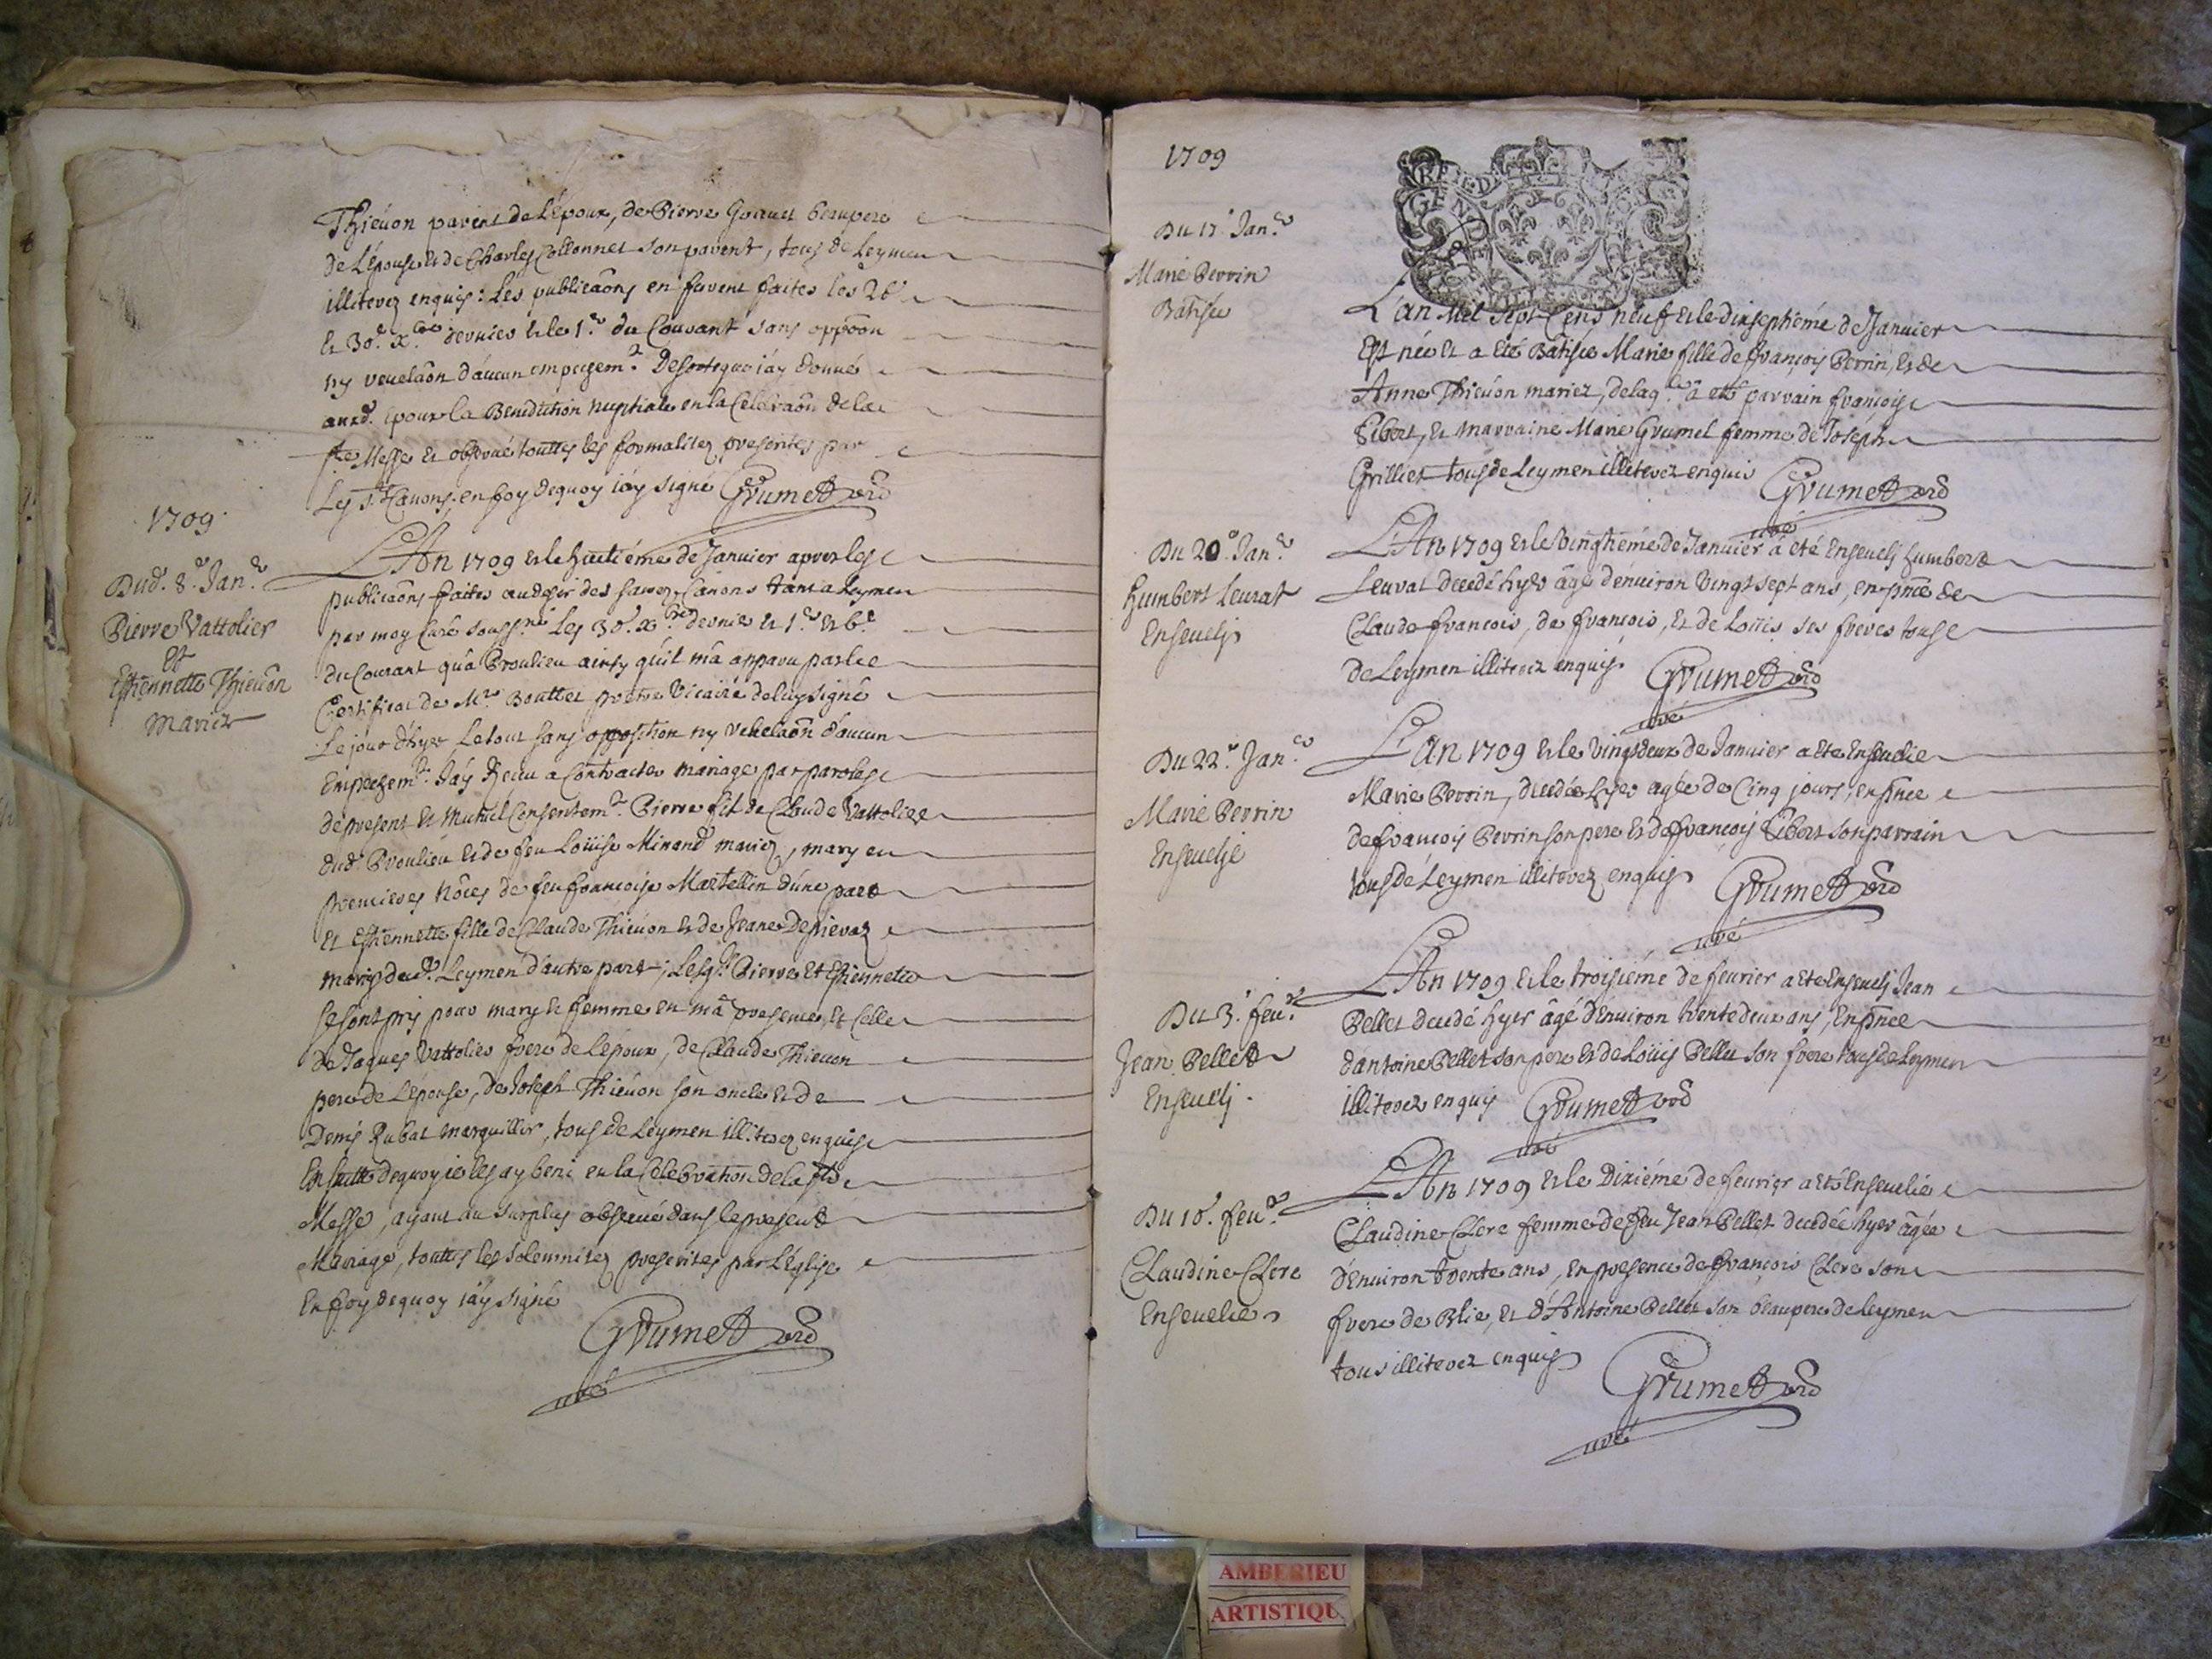 Thieuon parent de L'époux, de Pierre Goiuet beaupere
de L'épouse et de Charles Collonnet son parent, tous de Leymen
illiterez enquis: Les publicaôns en furent faites les 26e
et 30e. Xbre dernier et le 1er du Courant sans oppôon
ny reuelaôn d'aucun empeschemt. De sorte que i'ay donné
auxd. époux la Benediction nuptiale en la Celebraôn de la
ste Messe et obserué touttes les formalitez prescrites par
Les sts Canons, en foy dequoy i'ay signé Grumet
curé
1709
Dud. 8e Janer
Pierre Vattolier
Et
Ethiennette Thieuon
mariez
L'An 1709 et le huitiéme de Januier apres les
publicaôns faites au desir des saints Canons tant a Leymen
par moy Curé soussné Les 30e. Xbre dernier et 1er et 6e
du Courant qu'a Proulieu ainsy qu'il m'a apparu par le
Certificat de Mre Bouttet prêtre Vicaire de luy signé
Le jour d'hyer Le tout sans opposition ny reuelaôn d'aucun
Empeschemt. J'ay Receu a Contracter mariage par paroles
de present et mutuel Consentemt. Pierre fils de Claude Vattolier
dud. Proulieu et de feu Loüise Minand mariez, mary en
premieres Nôces de feu francoise Martellin d'une part
Et Ethiennette fille de Claude Thieuon et de Jeane Depieraz
mariez dud. Leymen d'autre part; Lesqls Pierre Et Ethiennette
se sont pris pour mary et femme en ma presence, et Celle
de Jaques Vattolier frere de L'époux, de Claude Thieuon
pere de L'épouse, de Joseph Thieuon son oncle et de
Denis Rubat marguillier, tous de Leymen illiterez enquis
En suitte dequoy ie les ay beni en la Celebration de la ste
Messe, ayant au surplus obserué dans le present
Mariage, touttes les solemnitez prescrites par L'église
En foy dequoy i'ay signé
Grumet
curé
1709
Du 17e Janer
Marie Perrin
Batisée
GEN
L'an Mil Sept Cens neuf et le dixseptiéme de Januier
Est née et a été Batisée Marie fille de françois Perrin, et de
Anne Thieuon mariez, de laqle a eté parrain françois
Gibert, et marraine Marie Grumel femme de Joseph
Grilliet tous de Leymen illiterez enquis Grumet
curé
Du 20e Janer
Humbert Leurat
Enseueli
L'An 1709 et le vingtiéme de Januier a eté Enseueli humbert
Leurat decedé hyer âgé d'enuiron Vingt sept ans, en pnce de
Claude françois, de françois, et de Loüis ses freres tous
de Leymen illiterez enquis Grumet
curé
Du 22e Janer
Marie Perrin
Enseuelie
L'an 1709 et le vingtdeux de Januier a eté Enseuelie
Marie Perrin, decedée hyer agée de Cinq jours, en pnce
de françois Perrin son pere et de françois Gibert son parrain
tous de Leymen illiterez enquis Grumet
curé
Du 3e feur
Jean Pellet
Enseueli.
L'An 1709 et le troisiéme de feurier a eté Enseueli Jean
Pellet decedé hyer âgé d'Enuiron trente deux ans, En pnce
d'antoine Pellet son pere et de Loüis Pellet son frere tous de Leymen
illiterez enquis Grumet
curé
Du 10e. feur
Claudine Clere
Enseuelie
L'An 1709 et le Dixiéme de feurier a eté Enseuelie
Claudine Clere femme de feu Jean Pellet decedée hyer âgée
d'Enuiron trente ans, en presence de françois Clere son
frere de Blie, et d'Antoine Pellet son beaupere de Leymen
tous illiterez enquis
Grumet
curé
AMBERIEU
ARTISTIQU